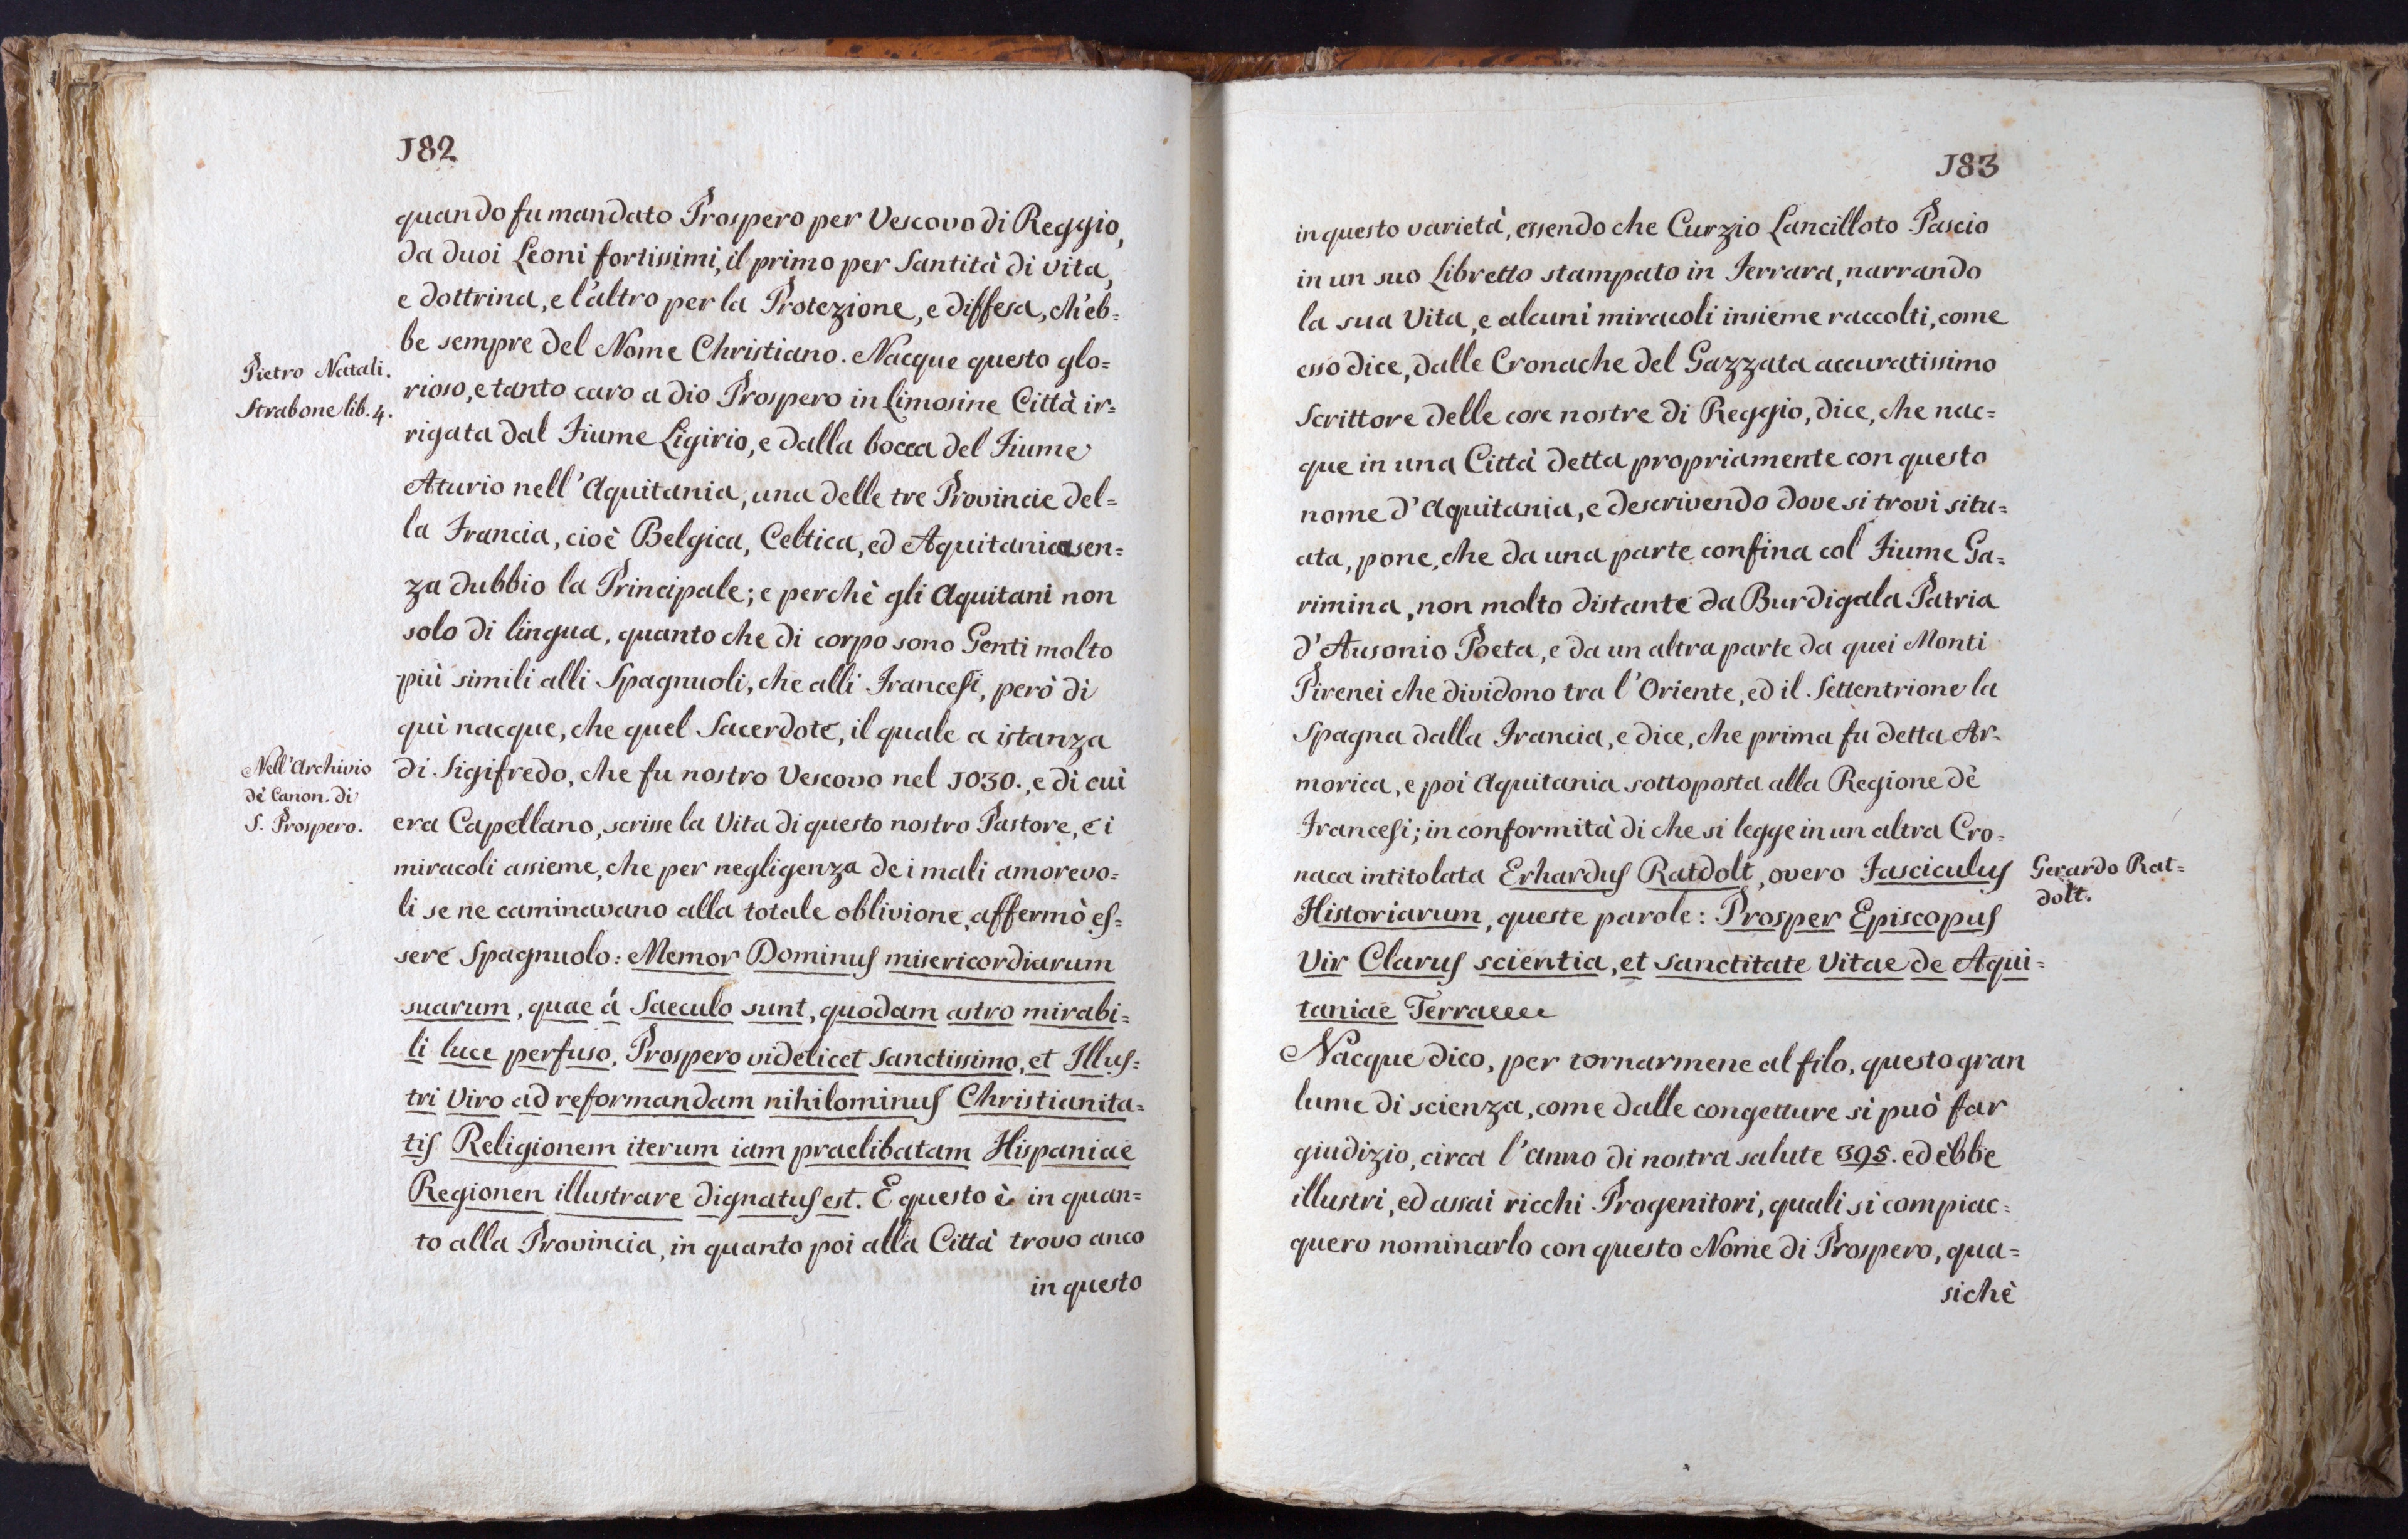 182
quando fu mandato Prospero per Vescovo di Reggio,
da duoi Leoni fortissimi, il primo per Santità di vita,
e dottrina, e l'altro per la Protezione, e diffesa, ch'eb=
be sempre del Nome Christiano. Nacque questo glo=
Pietro Natali.
Strabone lib. 4.
rioso, e tanto caro a dio Prospero in Limosine Città ir=
rigata dal Fiume Ligirio, e dalla bocca del Fiume
Aturio nell'Aquitania, una delle tre Provincie del=
la Francia, cioè Belgica, Celtica, ed Aquitanica sen=
za dubbio la Principale; e perchè gli Aquitani non
solo di lingua, quanto che di corpo sono Genti molto
più simili alli Spagnuoli, che alli Francesi, però di
quì nacque, che quel Sacerdote, il quale a istanza
Nell'Archivio
dè Canon. di
S. Prospero.
di Sigifredo, che fu nostro Vescovo nel 1030., e di cui
era Capellano, scrisse la Vita di questo nostro Pastore, e i
miracoli assieme, che per negligenza de i mali amorevo=
li se ne caminavano alla totale oblivione, affermò es=
sere Spagnuolo: Memor Dominus misericordiarum
suarum, quae á Saeculo sunt, quodam astro mirabi=
li luce perfuso, Prospero videlicet Sanctissimo, et Illus=
tri Viro ad reformandam nihilominus Christianita=
tis Religionem iterum iam praelibatam Hispaniae
Regionen illustrare dignatus est. E questo è in quan=
to alla Provincia, in quanto poi alla Città trovo anco
in questo
183
in questo varietà, essendo che Curzio Lancilloto Pascio
in un suo Libretto stampato in Ferrara, narrando
la sua Vita, e alcuni miracoli insieme raccolti, come
esso dice, dalle Cronache del Gazzata accuratissimo
Scrittore delle cose nostre di Reggio, dice, che nac=
que in una Città detta propriamente con questo
nome d'Aquitania, e descrivendo dove si trovi situ=
ata, pone, che da una parte confina col Fiume Ga=
rimina, non molto distante da Burdigala Patria
d'Ausonio Poeta, e da un altra parte da quei Monti
Pirenei che dividono tra l'Oriente, ed il Settentrione la
Spagna dalla Francia, e dice, che prima fu detta Ar=
morica, e poi Aquitania sottoposta alla Regione dè
Francesi; in conformità di che si legge in un altra Cro=
naca intitolata Erhardus Ratdolt, overo Fasciculus
Gerardo Rat=
dolt.
Historiarum, queste parole: Prosper Episcopus
Vir Clarus scientia, et sanctitate Vitae de Aqui=
taniae Terra
Nacque dico, per tornarmene al filo, questo gran
lume di scienza, come dalle congetture si può far
giudizio, circa l'anno di nostra salute 395. ed ebbe
illustri, ed assai ricchi Progenitori, quali si compiac=
quero nominarlo con questo Nome di Prospero, qua=
sichè